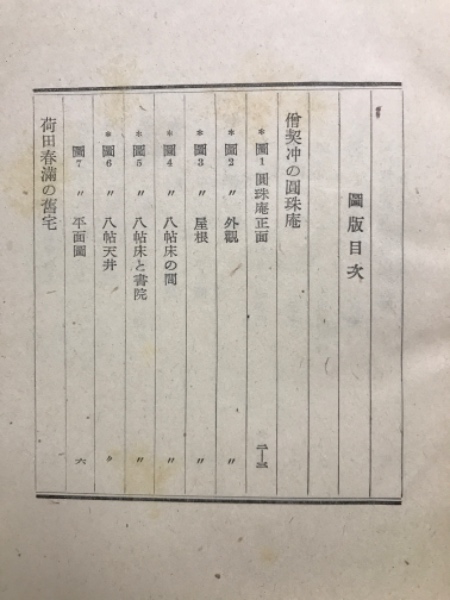 圖版目次
僧契冲の圓珠庵
*圖1 圓珠庵正面 二—三
*圖2 〃 外觀 〃
*圖3 〃 屋根 〃
*圖4 〃 八帖床の間 〃
*圖5 〃 八帖床と書院 〃
*圖6 〃 八帖天井 〃
圖7 〃 平面圖 六
荷田春滿の舊宅